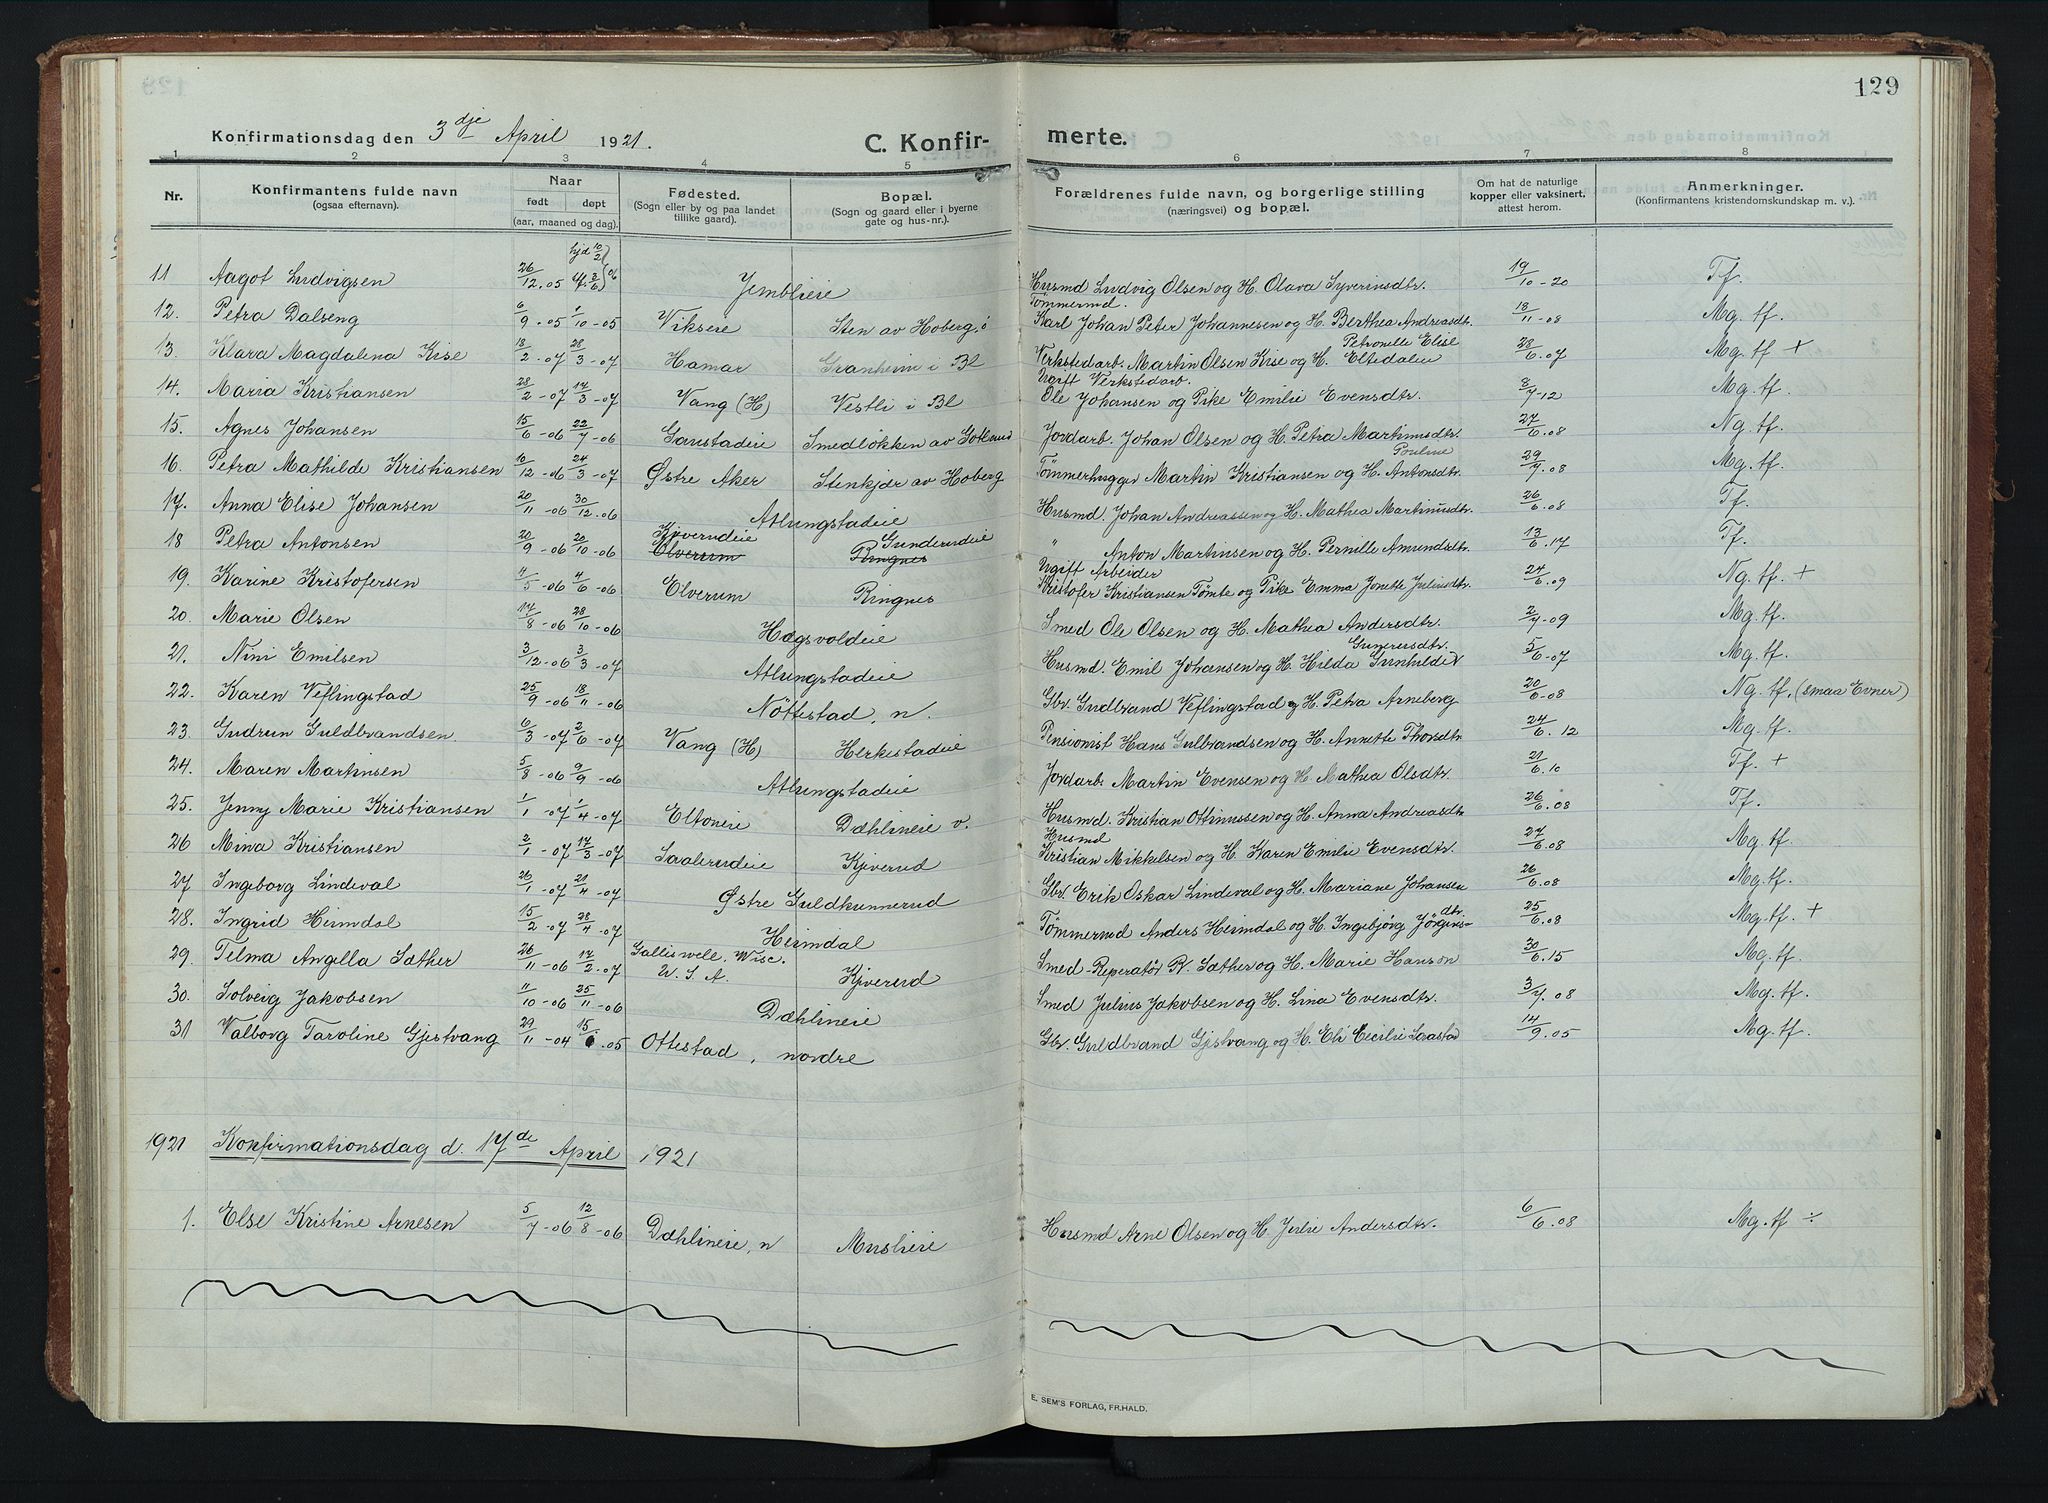 129
Konfirmationsdag den 3dje April 1921. C. Konfirmerte.
1 2 3 4 5 6 7 8
Nr. Konfirmantens fulde navn (ogsaa efternavn). Naar født døpt (aar, maaned og dag). Fødested. (Sogn eller by og paa landet tillike gaard). Bopæl. (Sogn og gaard eller i byerne gate og hus-nr.). Forældrenes fulde navn, og borgerlige stilling (næringsvei) og bopæl. Om hat de naturlige kopper eller vaksinert, attest herom. Anmerkninger. (Konfirmantens kristendomskundskap m. v.).
11 Aagot Ludvigsen 26/12.05 hjd 10/2 06 Jemblieie Husmd Ludvig Olsen og H. Olava Syverinsdtr. 19/10-20 Tf.
12. Petra Dalseng 6/9-05 1/10-05 Viksere Sten av Hoberg, ö Tömmermd. Karl Johan Peter Johannesen og H. Berthea Andreasdtr. 18/11-08 Mg. tf.
13. Klara Magdalena Kise 18/2-07 28/3-07 Hamar Granheim i Bl Verkstedarb. Martin Olsen Kise og H. Petronelle Elise Eltedalen 28/6.07 Mg. tf +
14. Maria Kristiansen 28/2-07 17/3-07 Vang (H) Vestli i Bl Ugift Verkstedarb. Ole Johansen og Pike Emilie Evensdtr. 8/7-12 Mg. tf.
15. Agnes Johansen 15/6-06 22/7-06 Gaustadeie Smedløkken av Jordarb. Johan Olsen og H. Petra Martinusdtr. 27/6.08 Ng. tf.
16. Petra Mathilde Kristiansen 10/12-06 24/3-07 Østre Aker Stenkjær av Hoberg Tömmerhugger Martin Kristiansen og H. Pouline Antonsdtr. 29/7.08 Mg. tf.
17. Anna Elise Johansen 20/11-06 30/12.06 Atlungstadeie Husmd. Johan Andreassen og H. Mathea Martinusdtr. 26/6.08 Tf.
18 Petra Antonsen 20/9-06 20/10-06 Kjverudeie Elverum Gunderudeie Ringnes " Anton Martinsen og H. Pernille Amundsdtr. 13/6.17 Tf.
19. Karine Kristofersen 4/5-06 4/6-06 Elverum Ringnes Ugift Arbeider Kristofer Kristiansen Tömte og Pike Emma Jonette Juliusdtr. 24/6.09 Ng. tf. +
20. Marie Olsen 17/8-06 28/10-06 Hagsvoldeie Smed Ole Olsen og H. Mathea Andersdtr. 2/7-09 Mg. tf.
21. Nini Emilsen 3/12-06 3/3-07 Atlungstadeie Husmd. Emil Johansen og H. Hilda Gunhilde Gunerusdtr. 5/6-07 Mg. tf.
22. Karen Veflingstad 25/9-06 18/11-06 Nöttestad, n. Gbr. Gudbrand Veflingstad og H. Petra Arneberg 20/6-08 Ng. tf. (smaa Evner)
23. Gudrun Guldbrandsen. 6/3-07 2/6-07 Vang (H) Herkestadeie Pensionist Hans Gulbrandsen og H. Annette Thorsdtr 24/6.12 Mg. tf.
24. Maren Martinsen 5/8-06 9/9-06 Atlungstadeie Jordarb. Martin Evensen og H. Mathea Olsdtr. 21/6.10 Tf. +
25. Jenny Marie Kristiansen 1/1-07 1/4-07 Eltoneie Dæhlineie v. Husmd. Kristian Ottinussen og H. Anna Andreasdtr 26/6.08 Tf.
26 Mina Kristiansen 2/1-07 17/3-07 Saalerudeie Kjverud Husmd Kristian Mikkelsen og H. Karen Emilie Evensdtr. 27/6.08 Mg. tf.
27 Ingeborg Lindeval 26/1-07 21/4-07 Østre Guldkunnerud Gbr. Erik Oskar Lindeval og H. Mariane Johansen 26/6.08 Mg. tf.
28. Ingrid Heimdal 15/2-07 28/4-07 Heimdal Tömmermd Anders Heimdal og H. Ingebjörg Jörgensdtr. 25/6.08 Mg. tf. +
29. Telma Angella Sæther 26/11-06 17/2.07 Galliswele, Wisc. U.S.A. Kjverud Smed-Reperatør P. Sæther og H. Marie Hanson 30/6.15 Mg. tf.
30. Solveig Jakobsen 11/10-06 25/11-06 Dæhlineie Smed Julius Jakobsen og H. Lina Evensdtr. 3/7.08 Mg. tf.
31 Valborg Taroline Gjestvang 29/11-04 15/.05 Ottestad, nordre Gbr. Guldbrand Gjestvang og H. Eli Cecilie Saastad 14/9.05 Mg. tf.
1921 Konfirmationsdag d. 17de April 1921
1. Else Kristine Arnesen 5/7-06 12/8-06 Dæhlineie, n Muslieie Husmd Arne Olsen og H. Julie Andersdtr. 6/6.08 Mg. tf ÷
E. SEM'S FORLAG, FR.HALD.